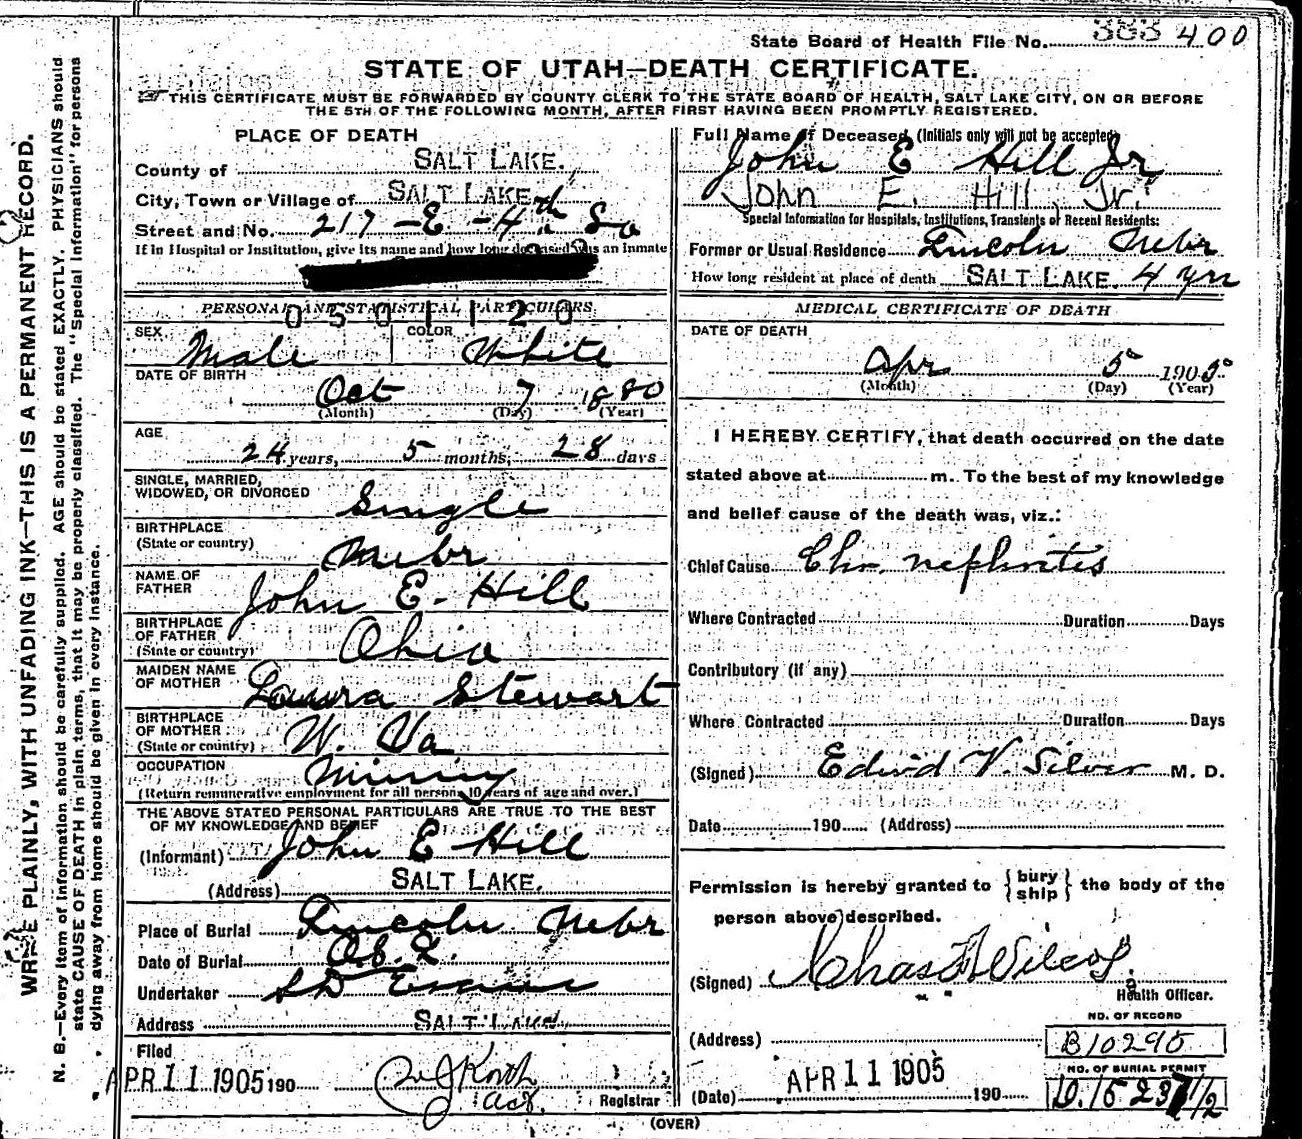 State Board of Health File No. 333 400
STATE OF UTAH—DEATH CERTIFICATE.
THIS CERTIFICATE MUST BE FORWARDED BY COUNTY CLERK TO THE STATE BOARD OF HEALTH, SALT LAKE CITY, ON OR BEFORE
THE 5TH OF THE FOLLOWING MONTH, AFTER FIRST HAVING BEEN PROMPTLY REGISTERED.
WRITE PLAINLY, WITH UNFADING INK—THIS IS A PERMANENT RECORD.
N. B.—Every item of information should be carefully supplied. AGE should be stated EXACTLY. PHYSICIANS should
state CAUSE OF DEATH in plain terms, that it may be properly classified. The "Special Information" for persons
dying away from home should be given in every instance.
PLACE OF DEATH
County of SALT LAKE.
City, Town or Village of SALT LAKE
Street and No. 217 - E - 4th So
If in Hospital or Institution, give its name and how long deceased was an Inmate
PERSONAL AND STATISTICAL PARTICULARS
0501120
SEX Male COLOR White
DATE OF BIRTH
Oct 7 1880
(Month) (Day) (Year)
AGE
24 years, 5 months, 28 days
SINGLE, MARRIED,
WIDOWED, OR DIVORCED Single
BIRTHPLACE
(State or country) Nebr
NAME OF
FATHER John E. Hill
BIRTHPLACE
OF FATHER
(State or country) Ohio
MAIDEN NAME
OF MOTHER Laura Stewart
BIRTHPLACE
OF MOTHER
(State or country) W. Va
OCCUPATION Mining
(Return remunerative employment for all persons 10 years of age and over.)
THE ABOVE STATED PERSONAL PARTICULARS ARE TRUE TO THE BEST
OF MY KNOWLEDGE AND BELIEF
(Informant) John E Hill
(Address) SALT LAKE.
Place of Burial Lincoln Nebr
Date of Burial
Undertaker S D Evans
Address SALT LAKE
Filed
APR 11 1905 190
Registrar
Full Name of Deceased (Initials only will not be accepted)
John E Hill Jr
John E. Hill, Jr.
Special Information for Hospitals, Institutions, Transients or Recent Residents:
Former or Usual Residence Lincoln Nebr
How long resident at place of death SALT LAKE. 4 yrs
MEDICAL CERTIFICATE OF DEATH
DATE OF DEATH
Apr 5 1905
(Month) (Day) (Year)
I HEREBY CERTIFY, that death occurred on the date
stated above at m. To the best of my knowledge
and belief cause of the death was, viz.:
Chief Cause Chr. nephritis
Where Contracted Duration Days
Contributory (if any)
Where Contracted Duration Days
(Signed) Edwid V. Silver M. D.
Date 190 (Address)
Permission is hereby granted to {bury
ship} the body of the
person above described.
(Signed) Chas F Wilcox
Health Officer.
NO. OF RECORD
(Address) B10295
NO. OF BURIAL PERMIT
(Date) APR 11 1905 190 D. 15237 1/2
(OVER)